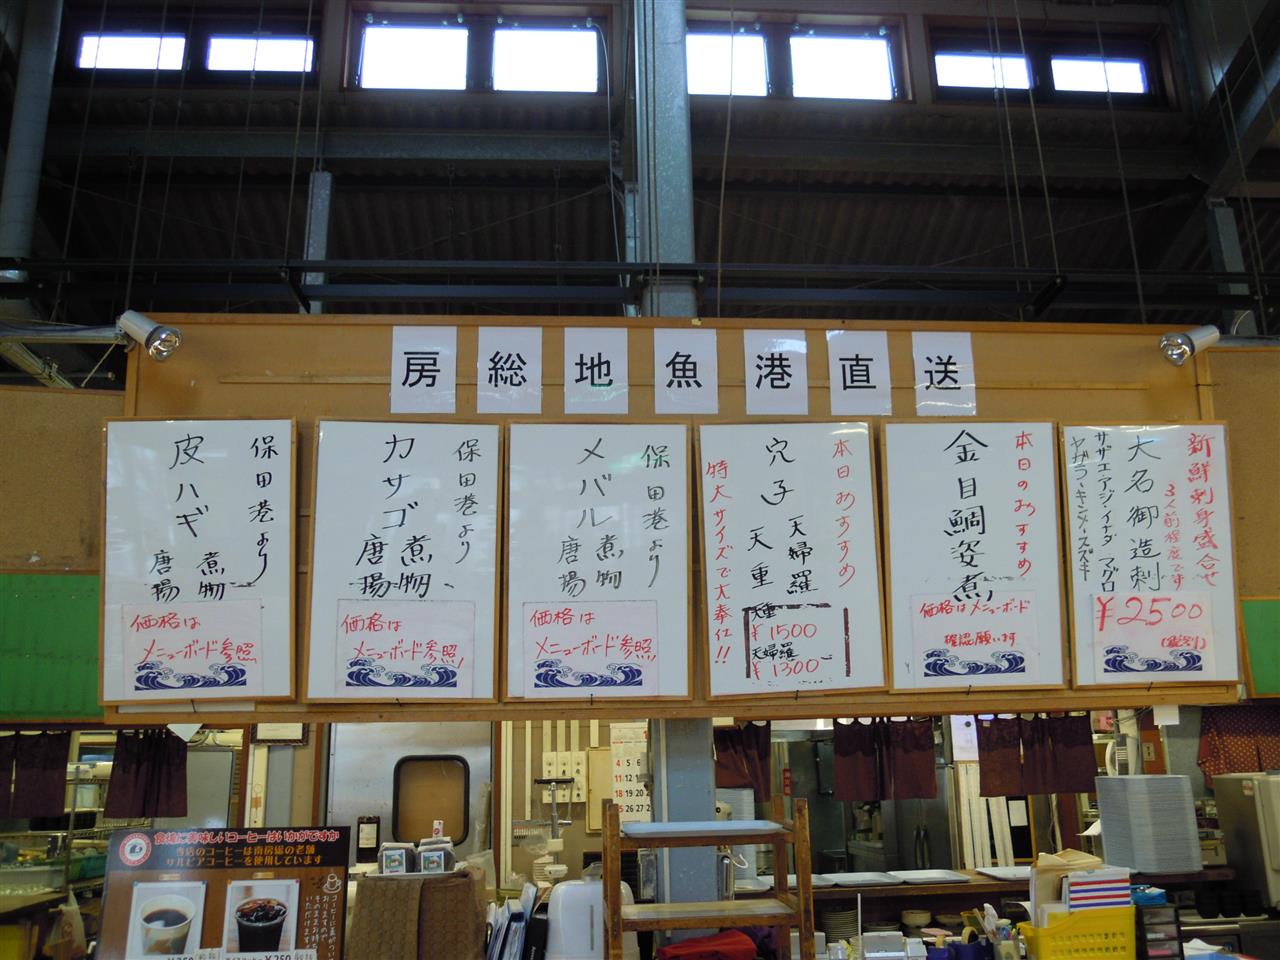 房総地魚港直送
新鮮刺身盛合せ
3人前程度です
大名御造刺
サザエ・アジ・イナダ・マグロ
ヤガラ・キンメ・スズキ
¥2500
(税込)
本日のおすすめ
金目鯛姿煮
価格はメニューボード
確認願います
本日おすすめ
穴子
天婦羅
天重
特大サイズで大奉仕!!
天重
¥1500
天婦羅
¥1300
保田港より
メバル
煮物
唐揚
価格は
メニューボード参照
保田港より
カサゴ
煮物
唐揚
価格は
メニューボード参照
保田港より
皮ハギ
煮物
唐揚
価格は
メニューボード参照
食後に美味しいコーヒーはいかがですか
当店のコーヒーは南房総の老舗
サルビアコーヒーを使用しています
4 5 6
11 12 13
18 19 20
25 26 27